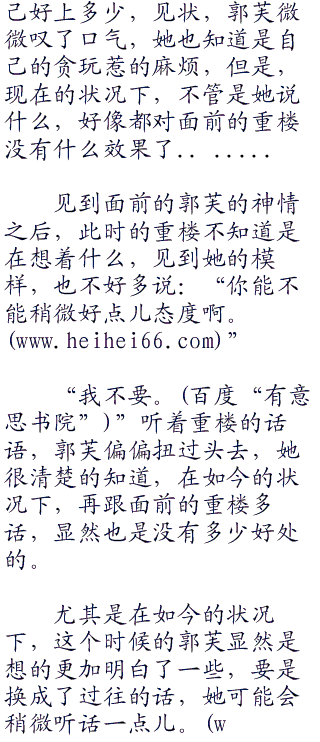 己好上多少，见状，郭芙微
微叹了口气，她也知道是自
己的贪玩惹的麻烦，但是，
现在的状况下，不管是她说
什么，好像都对面前的重楼
没有什么效果了.. .....
见到面前的郭芙的神情
之后，此时的重楼不知道是
在想着什么，见到她的模
样，也不好多说：“你能不
能稍微好点儿态度啊。
(www.heihei66.com)”
“我不要。(百度“有意
思书院”)”听着重楼的话
语，郭芙偏偏扭过头去，她
很清楚的知道，在如今的状
况下，再跟面前的重楼多
话，显然也是没有多少好处
的。
尤其是在如今的状况
下，这个时候的郭芙显然是
想的更加明白了一些，要是
换成了过往的话，她可能会
稍微听话一点儿。(w